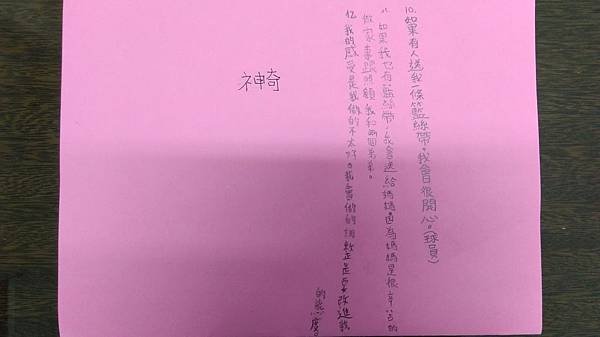 10. 如果有人送我一條籃絲帶,我會很開心。(球員)
11. 如果我也有藍絲帶,我會送給媽媽,因為媽媽是很辛苦的
做家事跟照顧我和兩個弟弟。
12. 我的感受是我做的不太好。我會做的調就是要改進我
的態度。
神奇